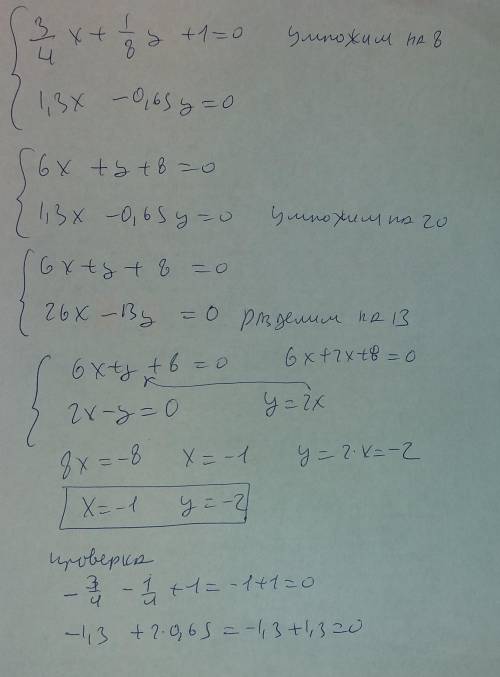 3/4 x + 1/8 y + 1 = 0 умножим на 8
1,3x - 0,65y = 0
6x + y + 8 = 0
1,3x - 0,65y = 0 умножим на 20
6x + y + 8 = 0
26x - 13y = 0 разделим на 13
6x + y + 8 = 0 6x + 2x + 8 = 0
2x - y = 0 y = 2x
8x = -8 x = -1 y = 2·x = -2
x = -1 y = -2
проверка
-3/4 - 1/4 + 1 = -1 + 1 = 0
-1,3 + 2·0,65 = -1,3 + 1,3 = 0